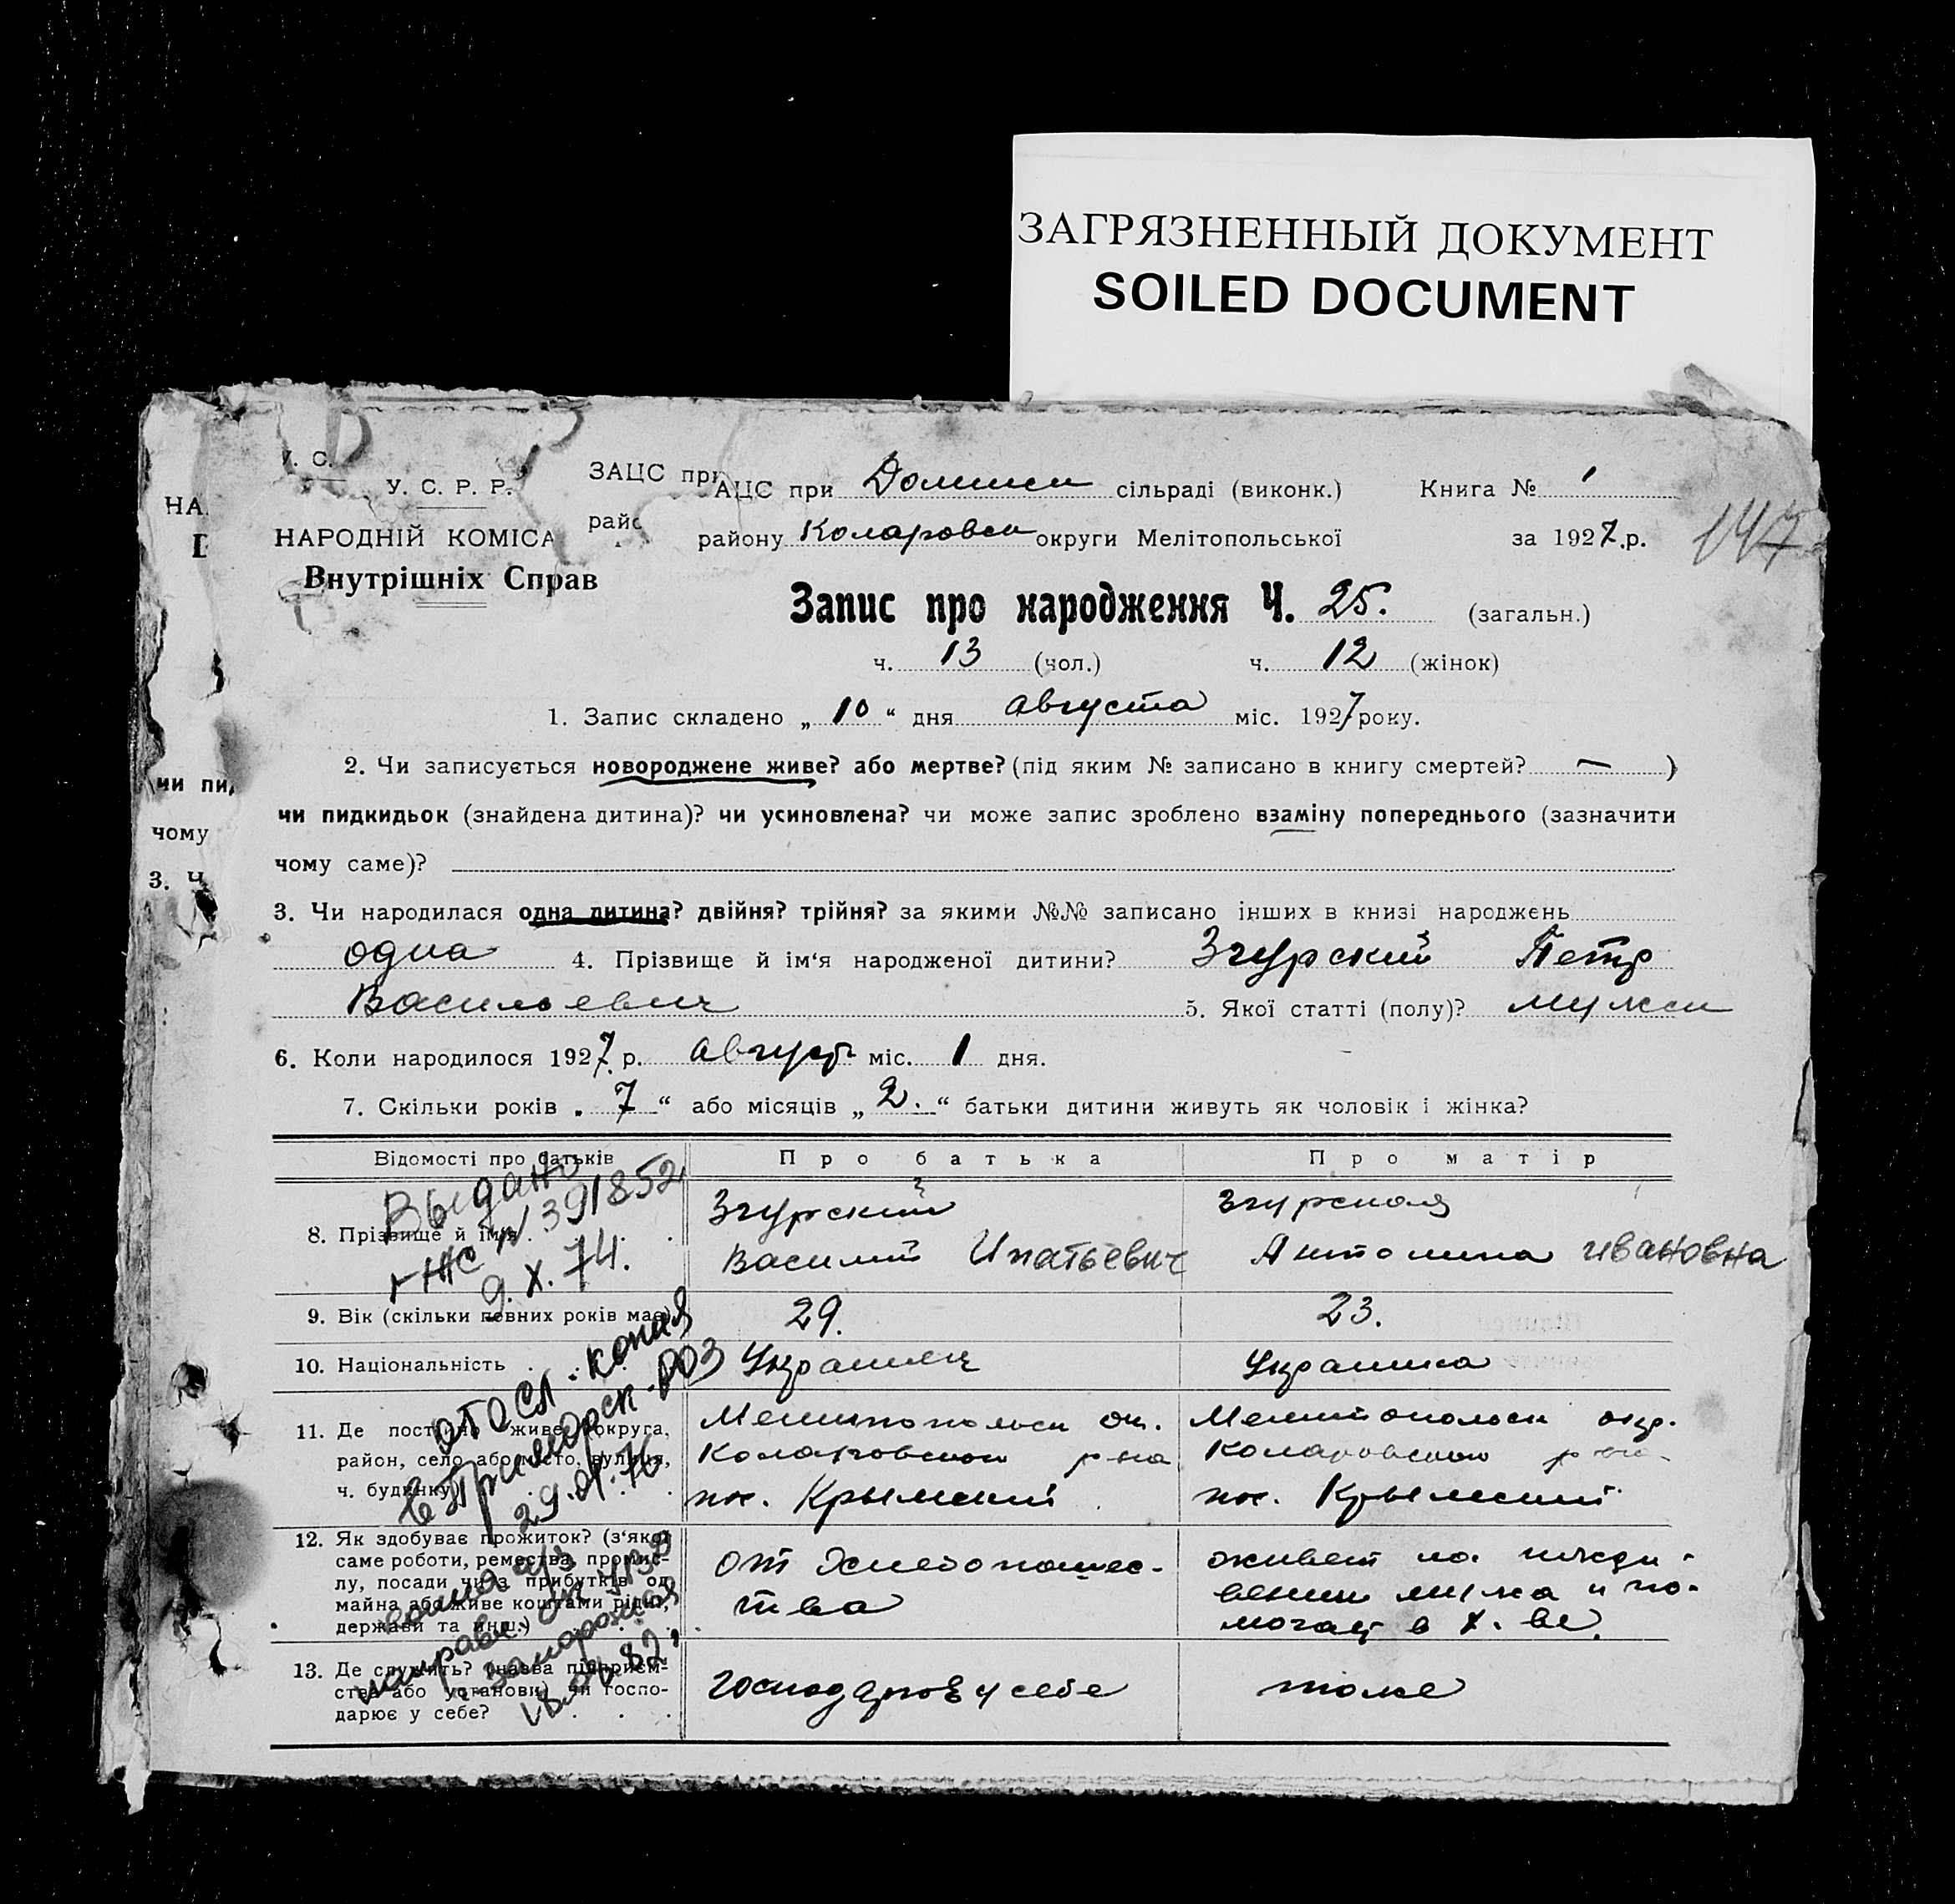 ЗАГРЯЗНЕННЫЙ ДОКУМЕНТ
SOILED DOCUMENT
У. С.
У. С. Р. Р.
НАРОДНІЙ КОМІСА
Внутрішніх Справ
ЗАЦС при
АЦС при сільраді (виконк.) Книга № 1
району Коларовск округи Мелітопольської за 1927.р.
147
Запис про народження Ч. 25. (загальн.)
ч. 13 (чол.) ч. 12 (жінок)
1. Запис складено „ 10 “ дня августа міс. 1927 року.
2. Чи записується новороджене живе? або мертве? (під яким № записано в книгу смертей? — )
чи пидкидьок (знайдена дитина)? чи усиновлена? чи може запис зроблено взаміну попереднього (зазначити
чому саме)?
3. Чи народилася одна дитина? двійня? трійня? за якими №№ записано інших в книзі народжень
одна 4. Прізвище й ім‘я народженої дитини? Згурский Петр
Васильевич 5. Якої статті (полу)? мужск
6. Коли народилося 1927 р. август міс. 1 дня.
7. Скільки років „ 7 “ або місяців „ 2. “ батьки дитини живуть як чоловік і жінка?
Відомості про батьків Про батька Про матір
8. Прізвище й ім‘я Згурский Згурская
Василий Ипатьевич Антонина Ивановна
Выдано
№ 391852
9. X. 74.
9. Вік (скільки повних років має) 29. 23.
10. Національність Украинец Украинка
11. Де постійно живе (округа, Мелитопольск ок. Мелитопольск окр.
район, село або місто, вулиця, Коларовского р-на Коларовского р-на
ч. будинку) пос. Крымский пос. Крымский
отосл. копия
в Приморск. РОЗ
29.01.76
12. Як здобуває прожиток? (з‘якої
саме роботи, ремества, промис-
лу, посади чи з прибутків од
майна або живе коштами рідні,
держави та инш.)
от хлебопашес-
тва
живет на ижди-
вении мужа и по-
могает в х. ве.
13. Де служить? (назва підприєм-
ства або установи) чи госпо-
дарює у себе?
господ у себе тоже
копия а/з
направл.
г. Запорожья